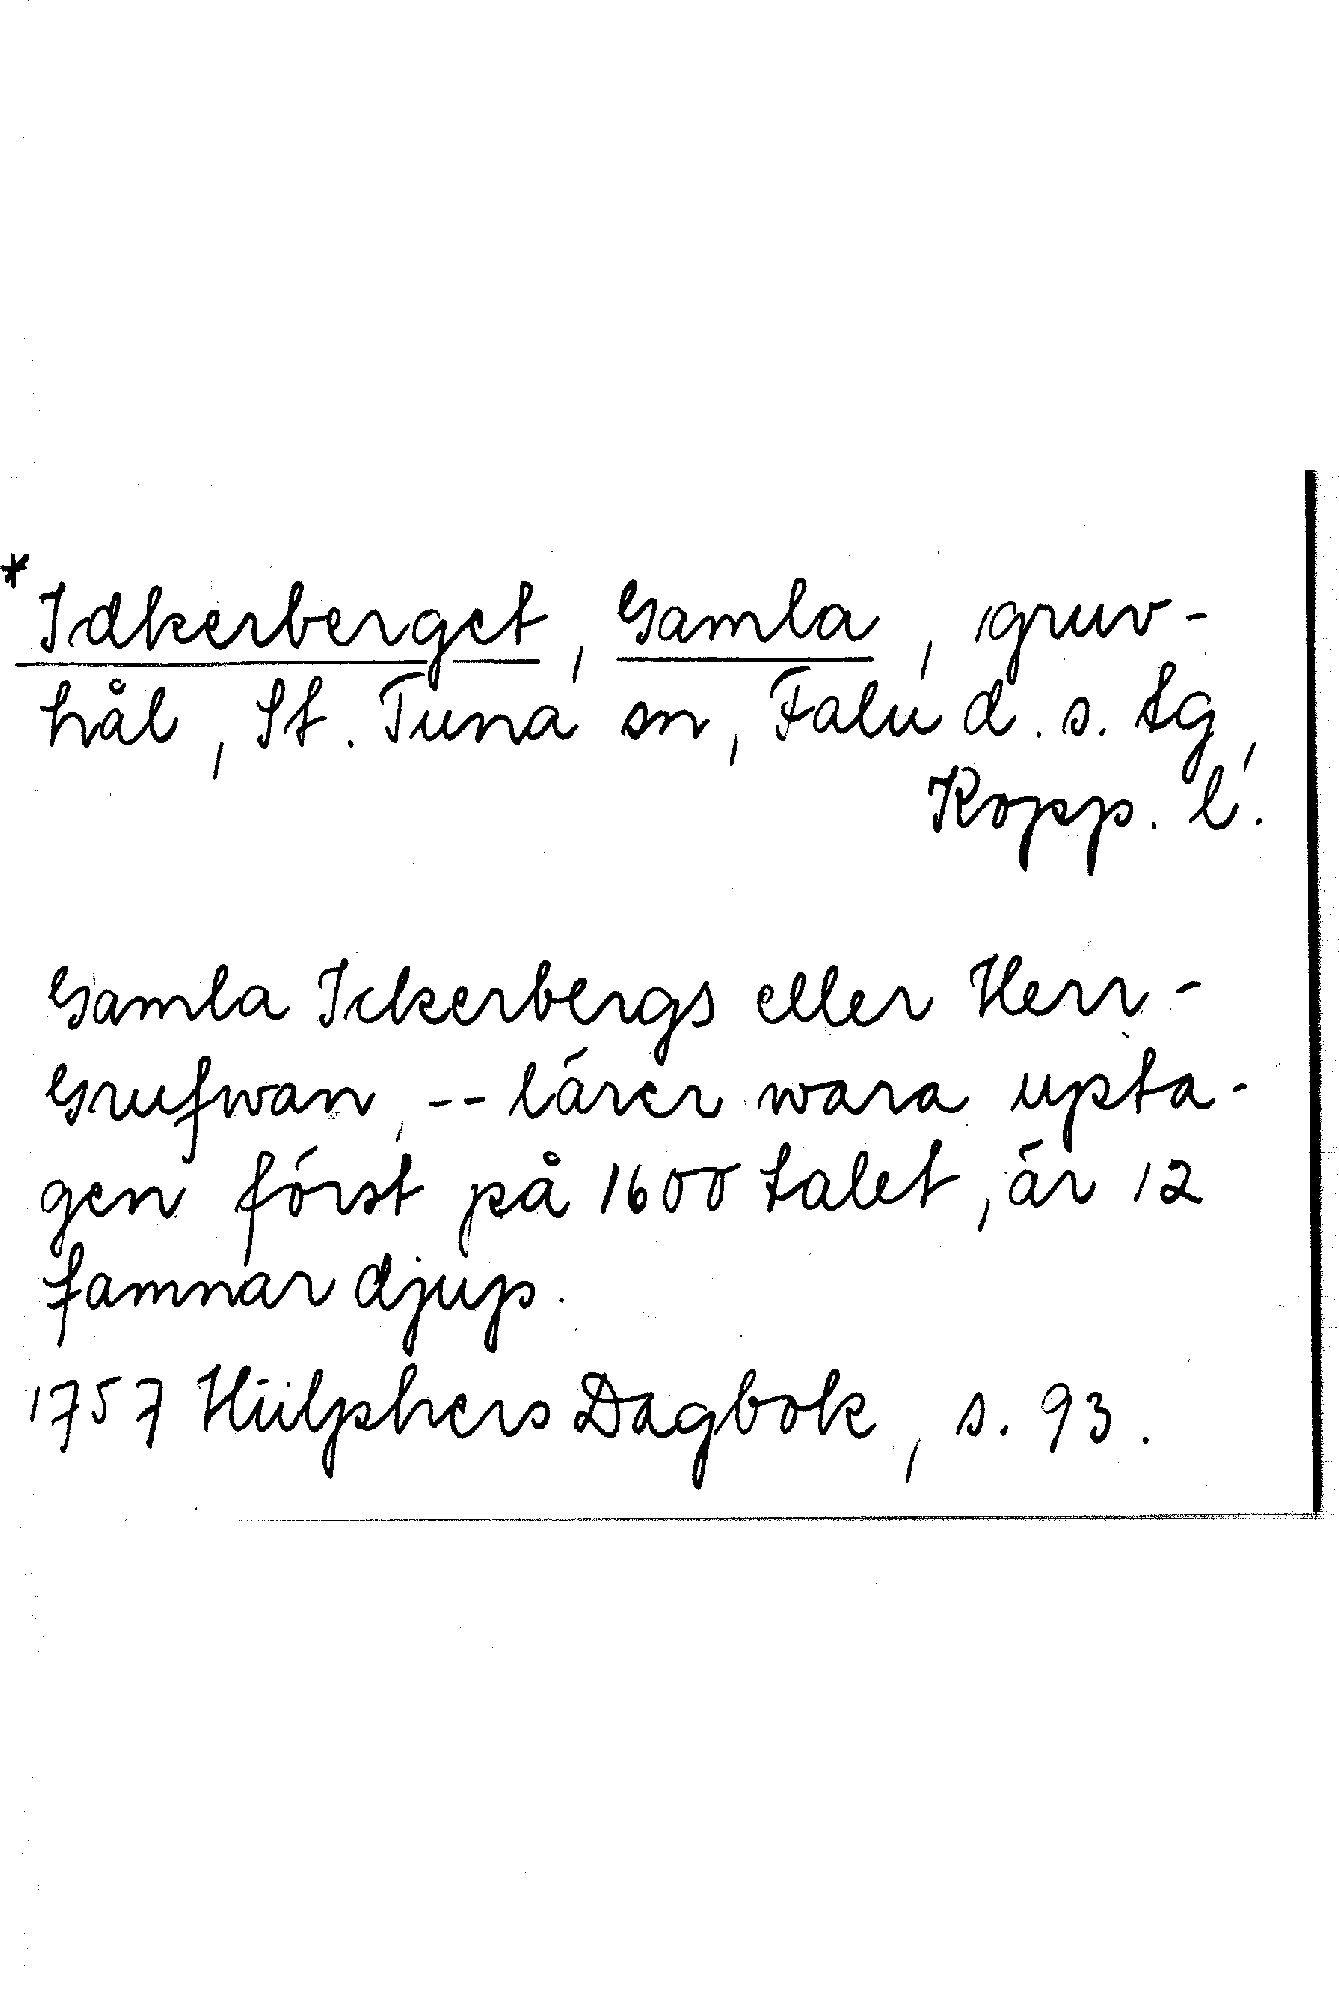 *Idkerberget, Gamla, gruv-
hål, St. Tuna sn, Falu d. s. tg,
Kopp. l.
Gamla Ickerbergs eller Herr-
Grufwan, -- lärer wara upta-
gen först på 1600 talet, är 12
famnar djup.
1757 Hülphers Dagbok, s. 93.